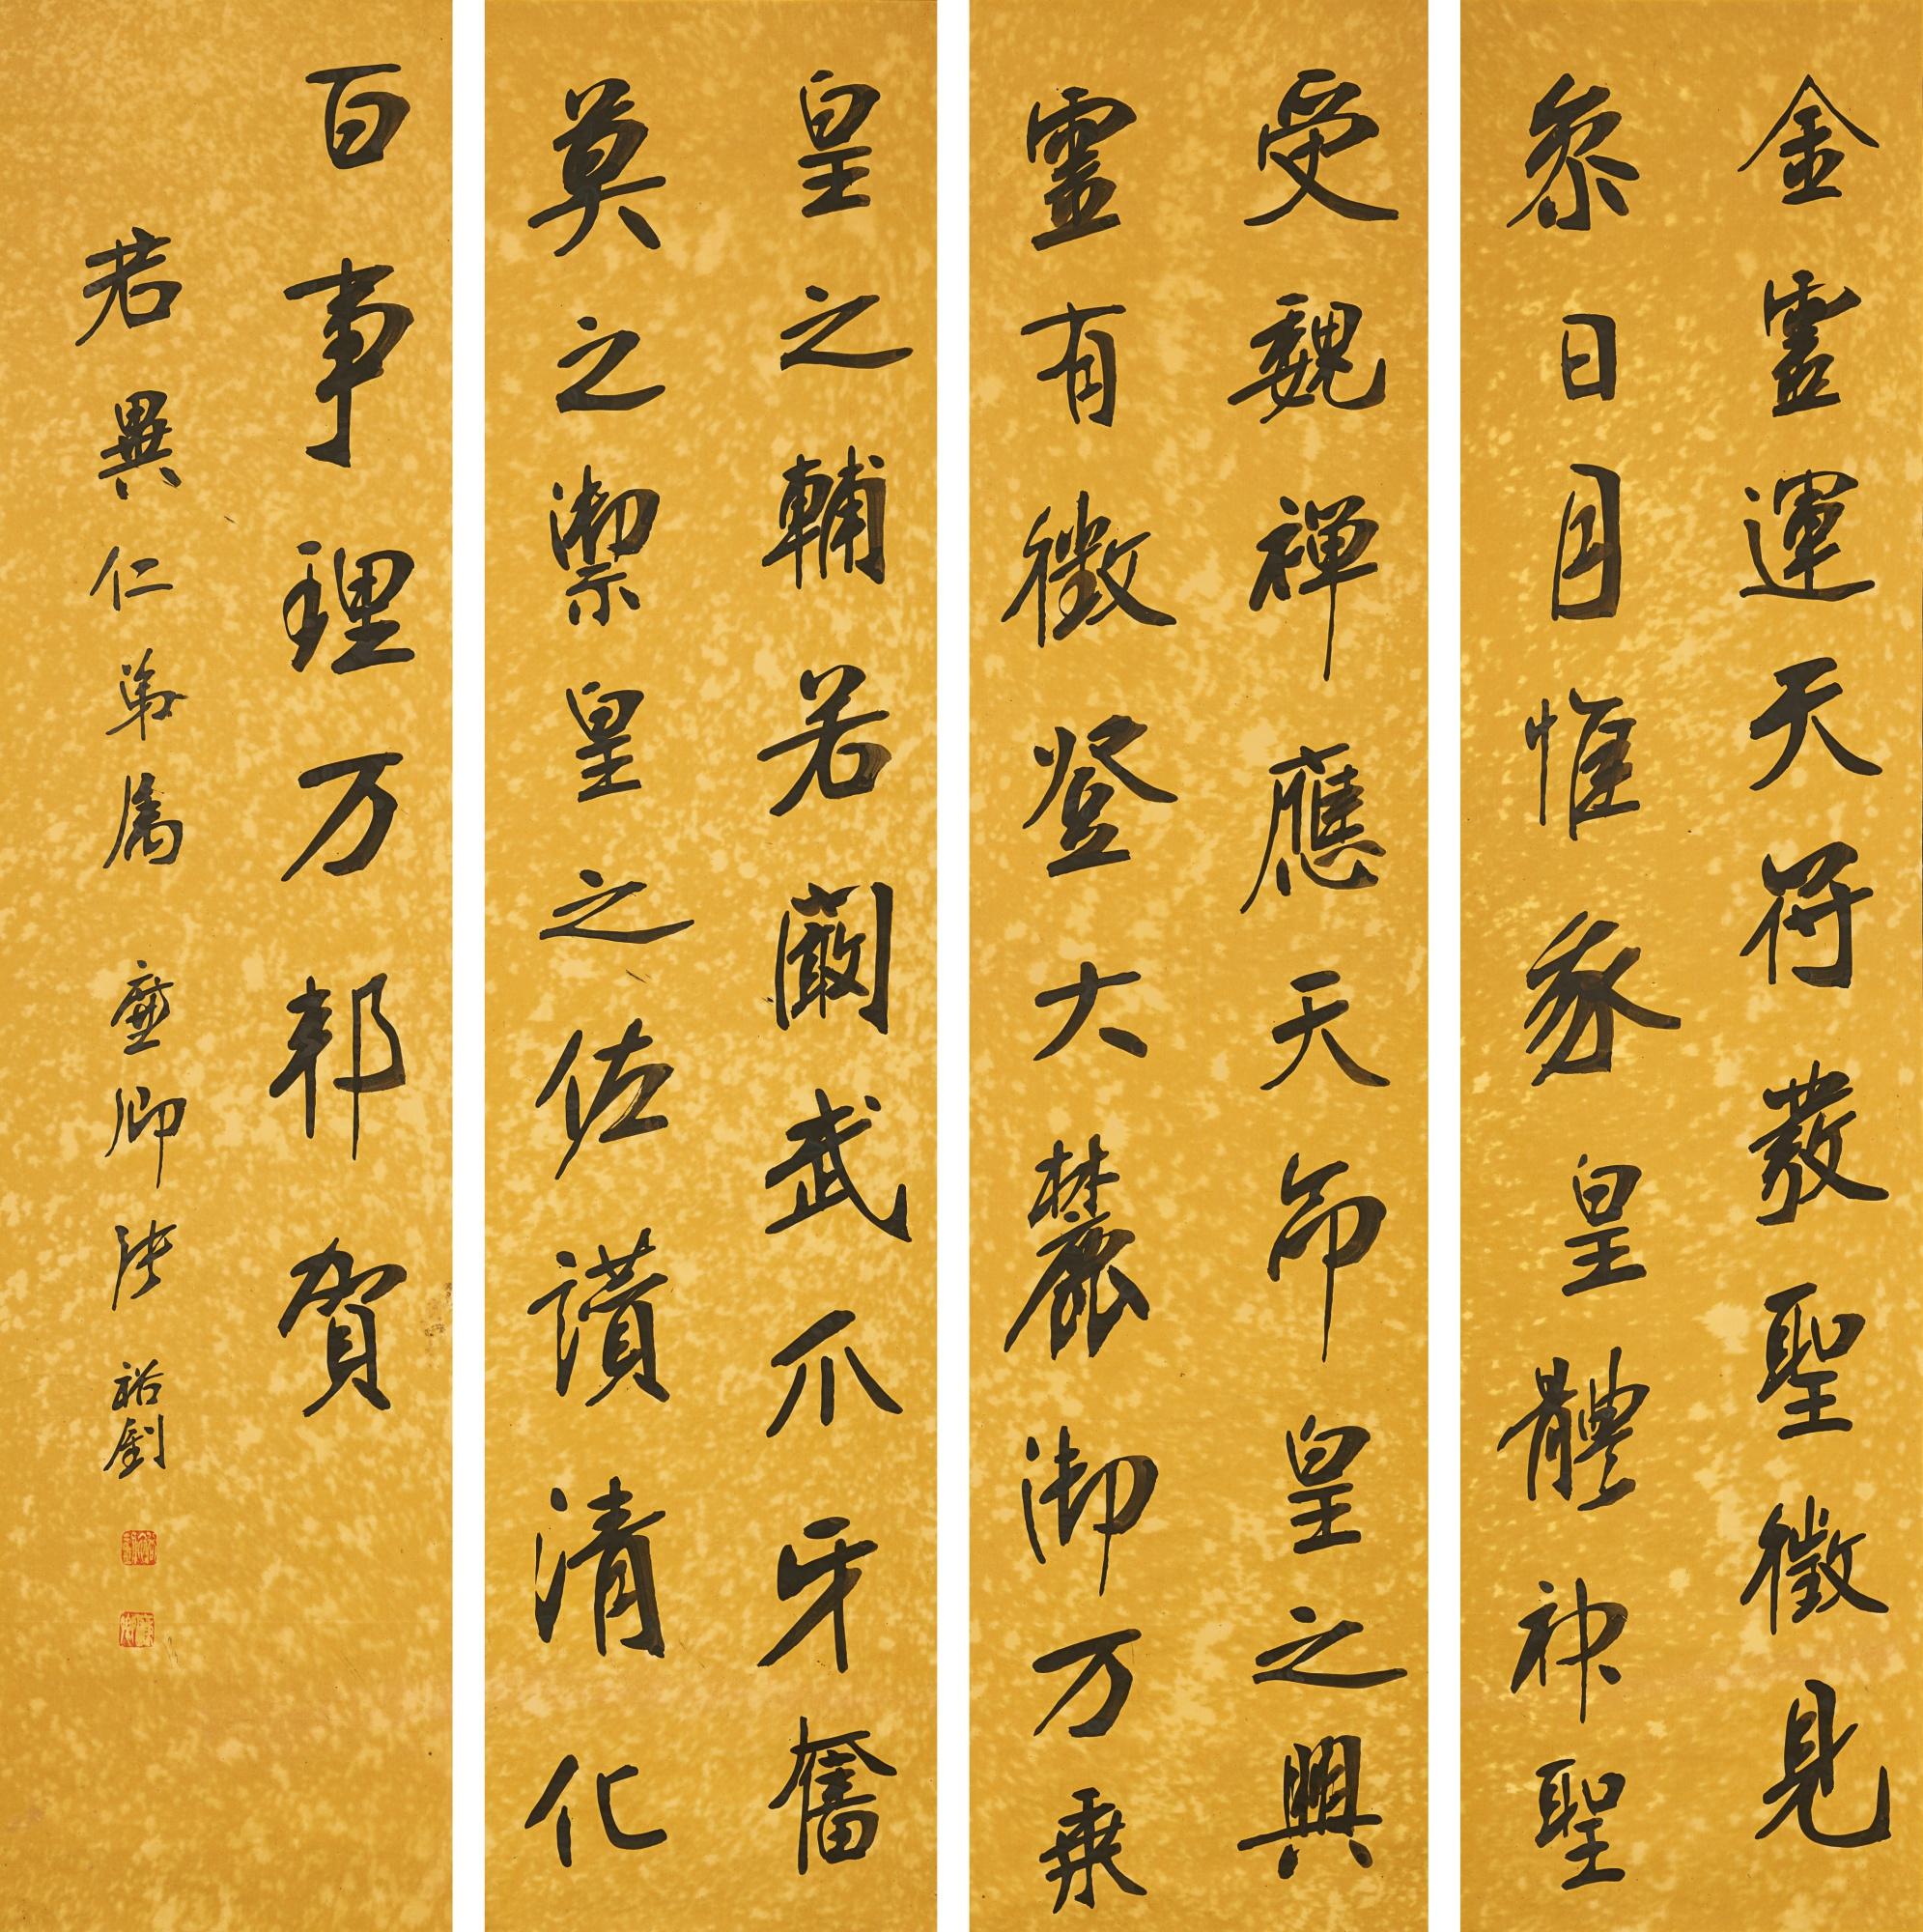 金靈運天符發聖徵見
參日月惟我皇體神聖
受魏禪應天命皇之興
靈有徵登大麓御万乘
皇之輔若闞武爪牙奮
莫之禦皇之佐讚清化
百事理万邦賀
君異仁弟属 廉卿張裕釗